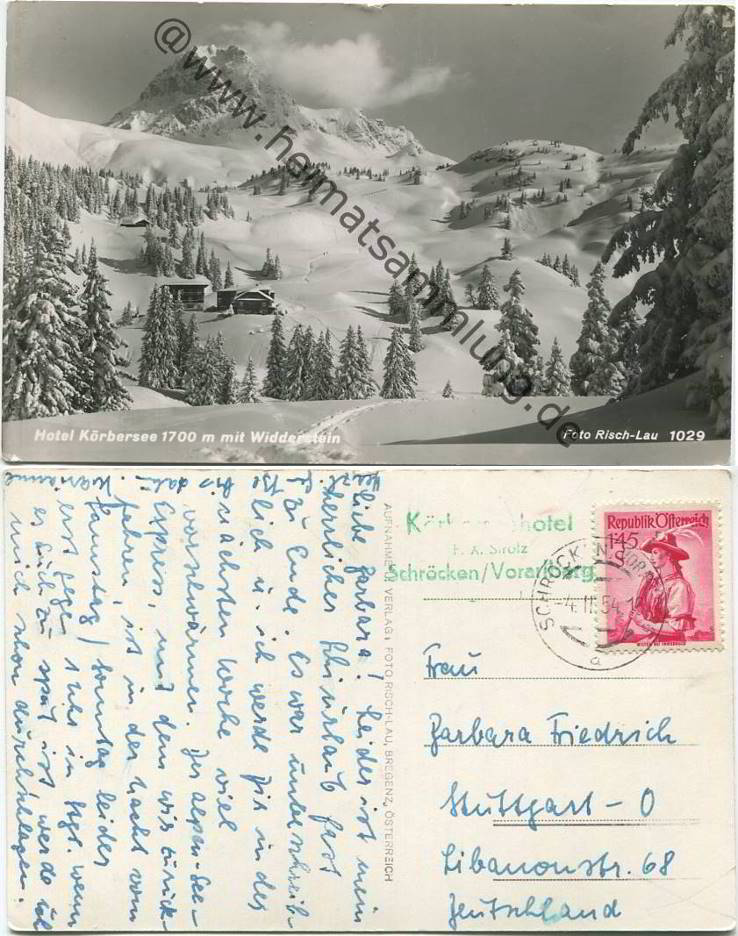 @www.heimatsammlung.de
Hotel Körbersee 1700 m mit Widderstein
Foto Risch-Lau 1029
Liebe Barbara! Leider ist mein
herrlicher Skiurlaub fast
zu Ende. Es war unbeschreib-
lich u. ich werde Dir in der
nächsten Woche viel
vorschwärmen. Der Alpen-See-
Express, mit dem wir zurück-
fahren, ist in der Nacht vom
Samstag / Sonntag leider
erst gegen Uhr in Stgt. wenn
es Euch zu spät ist werde ich
mich schon durchschlagen.
Herzl.
Bis dahin
Marianne
AUFNAHME U. VERLAG: FOTO RISCH-LAU, BREGENZ, ÖSTERREICH
Körberseehotel
F. X. Strolz
Schröcken/Vorarlberg
Republik Österreich
1.45
SCHRÖCKEN
-4.II.54
a
Frau
Barbara Friedrich
Stuttgart - O
Libanonstr. 68
Deutschland